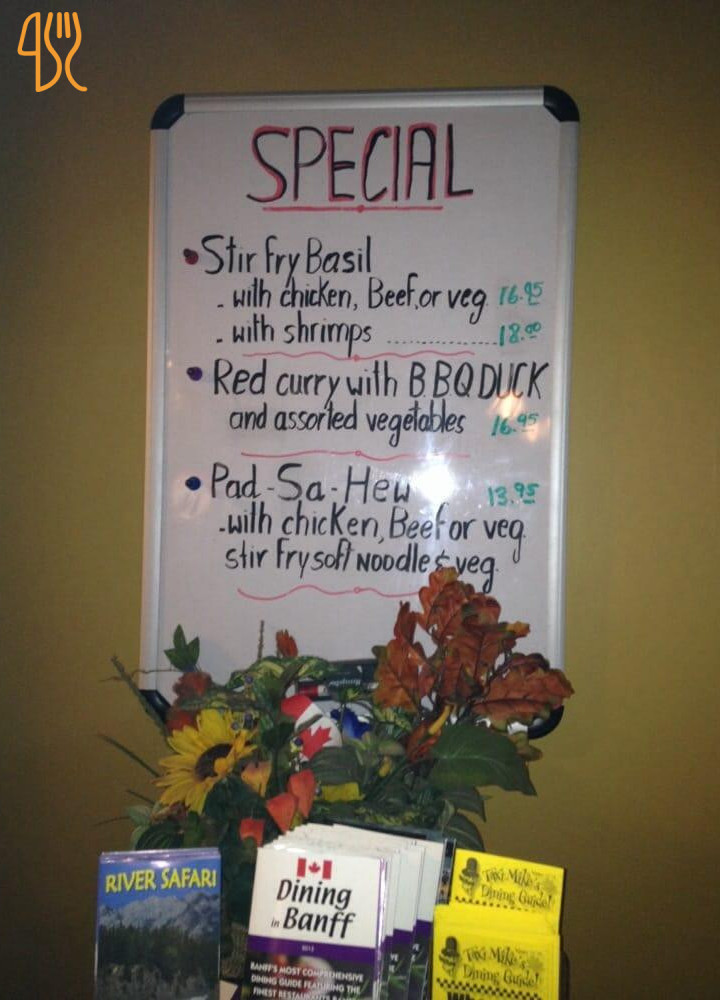 SPECIAL
Stir Fry Basil
- with chicken, Beef, or veg 16.95
- with shrimps ............... 18.00
Red curry with B.BQ DUCK
and assorted vegetables 16.95
Pad-Sa-Hew 13.95
- with chicken, Beef or veg.
stir fry soft NOODLE & veg.
RIVER SAFARI
Dining
in Banff
2013
BANFF'S MOST COMPREHENSIVE
DINING GUIDE FEATURING THE
FINEST RESTAURANTS
Taxi Mike's
Dining Guide!
Taxi Mike's
Dining Guide!